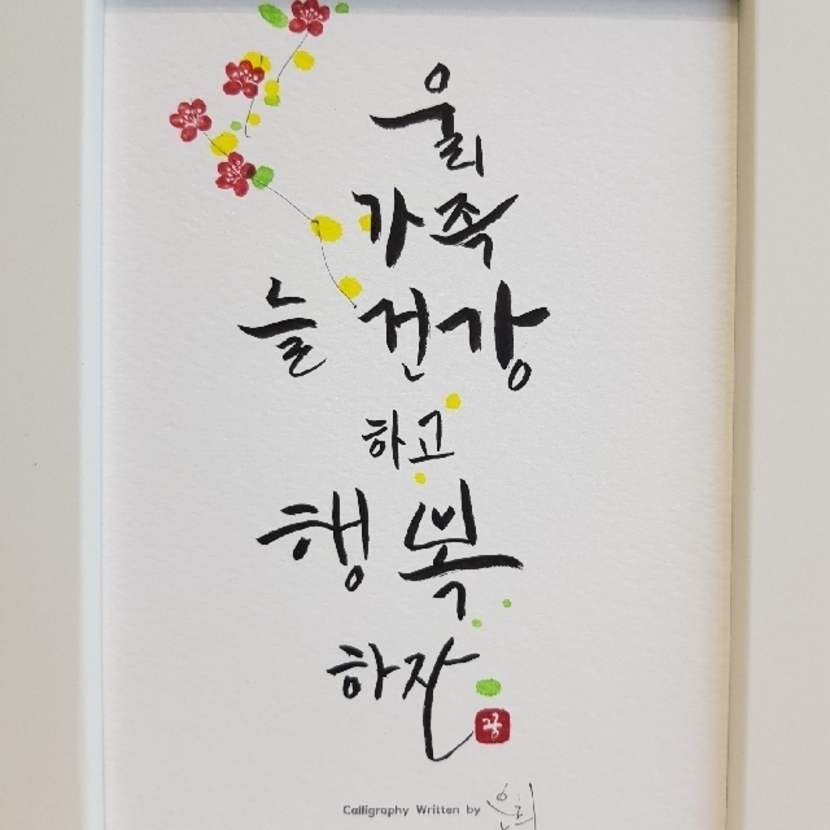 울리
가족
늘 건강
하고
행복
하자
꽁
Calligraphy Written by